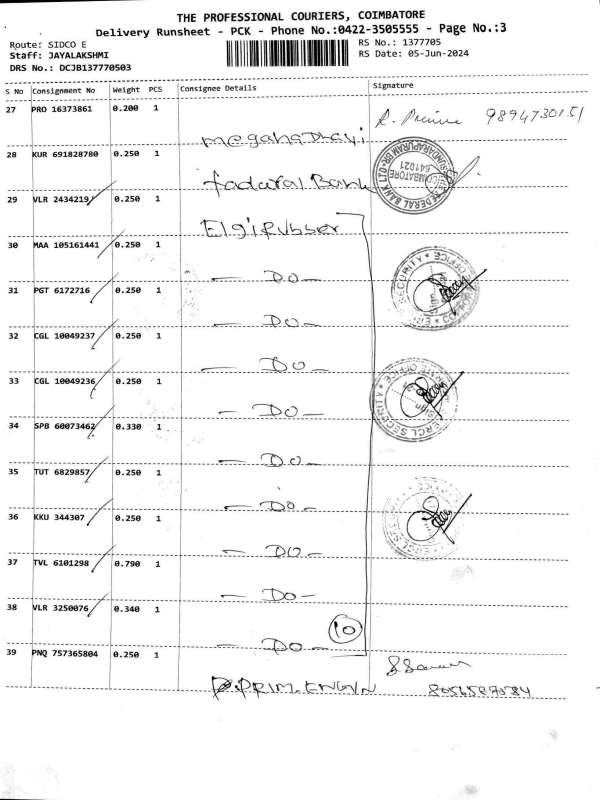 THE PROFESSIONAL COURIERS, COIMBATORE
Delivery Runsheet - PCK - Phone No.:0422-3505555 - Page No.:3
Route: SIDCO E
RS No.: 1377705
Staff: JAYALAKSHMI
RS Date: 05-Jun-2024
DRS No.: DCJB137770503
S No Consignment No Weight PCS Consignee Details Signature
27 PRO 16373861 0.200 1
9894730151
28 KUR 691828780 0.250 1
fadaral Bank
29 VLR 2434219 0.250 1
Elgi Rubber
30 MAA 105161441 0.250 1
— DO —
31 PGT 6172716 0.250 1
— DO —
32 CGL 10049237 0.250 1
— DO —
33 CGL 10049236 0.250 1
— DO —
34 SPB 60073462 0.330 1
— DO —
35 TUT 6829857 0.250 1
— DO —
36 KKU 344307 0.250 1
— DO —
37 TVL 6101298 0.790 1
— DO —
38 VLR 3250076 0.340 1
10
— DO —
39 PNQ 757365804 0.250 1
PRIM. ENGIN